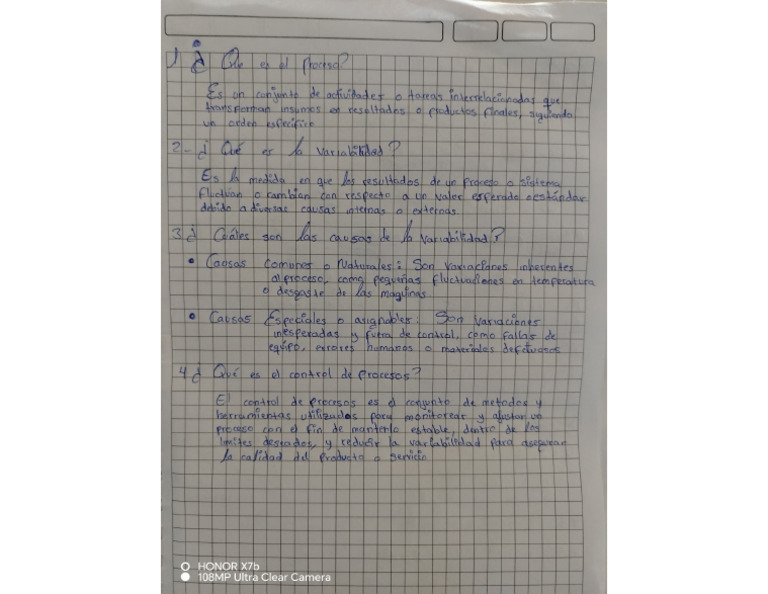 1 ¿ Que es el Proceso?
Es un conjunto de actividades o tareas interrelacionadas que
transforman insumos en resultados o productos finales, siguiendo
un orden especifico
2- ¿ Qué es la variabilidad?
Es la medida en que los resultados de un proceso o sistema
fluctúan o cambian con respecto a un valor esperado o estándar
debido a diversas causas internas o externas.
3 ¿ Cuáles son las causas de la variabilidad?
• Causas Comunes o Naturales: Son variaciones inherentes
al proceso, como pequeñas fluctuaciones en temperatura
o desgaste de las maquinas
• Causas Especiales o asignables: Son variaciones
inesperadas y fuera de control, como fallas de
equipo, errores humanos o materiales defectuosos
4 ¿ Qué es el control de procesos?
El control de procesos es el conjunto de metodos y
herramientas utilizados para monitorear y ajustar un
proceso con el fin de mantenerlo estable, dentro de los
limites deseados, y reducir la variabilidad para asegurar
la calidad del producto o servicio
HONOR X7b
108MP Ultra Clear Camera